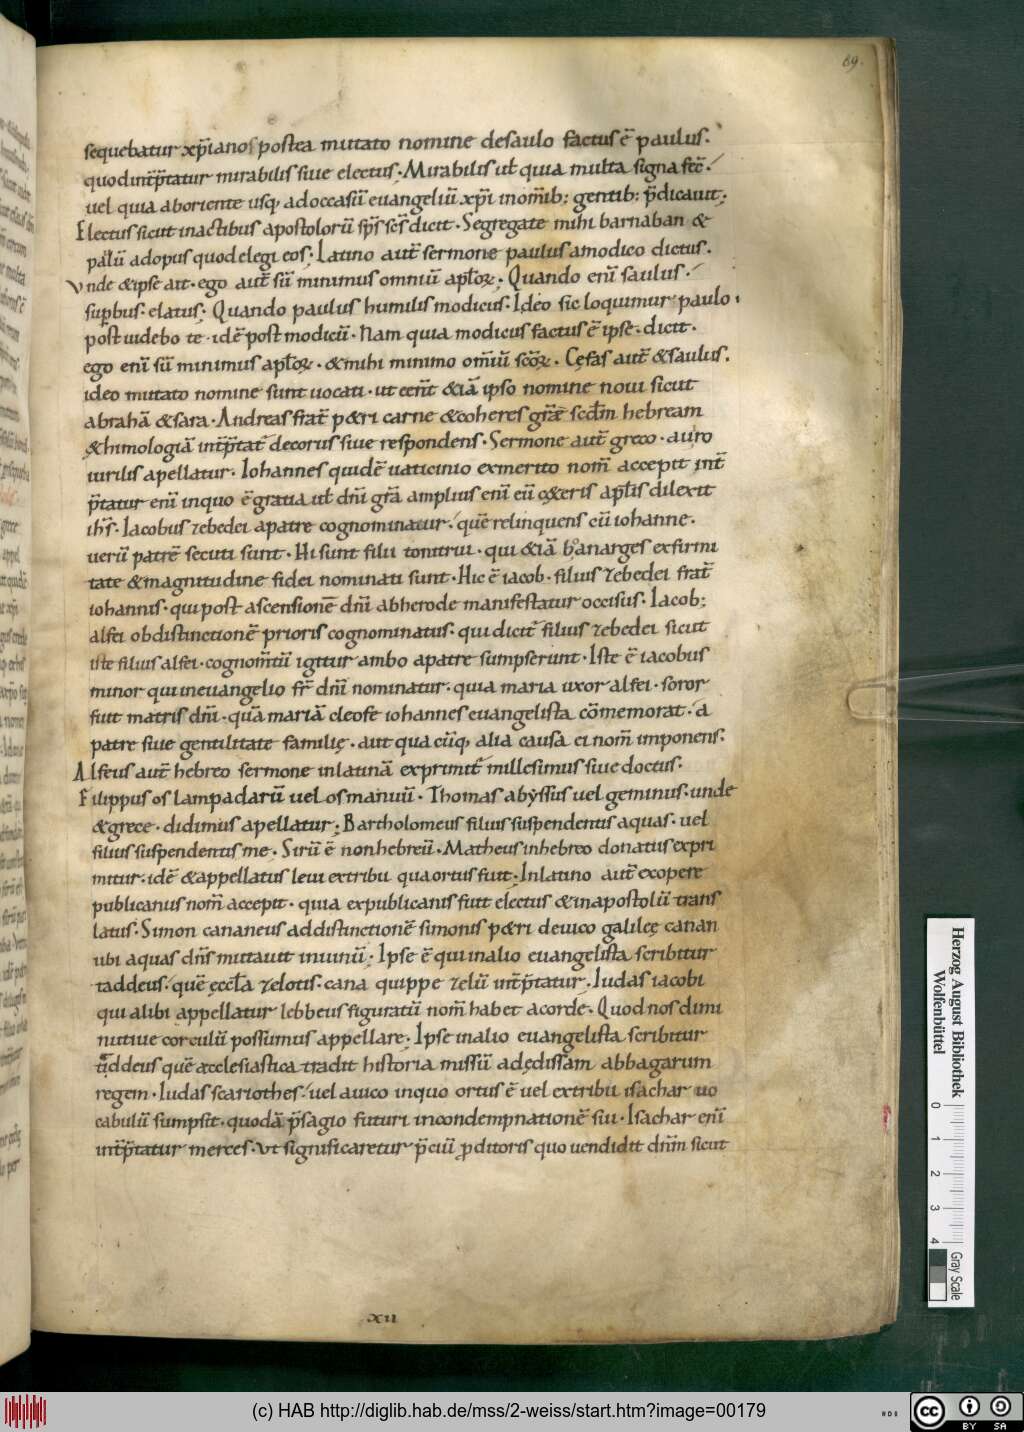 69.
sequebatur xp̄ianos postea mutato nomine desaulo factus ē paulus.
quod int̄p̄tatur mirabilis siue electus. Mirabilis ut̄ quia multa signa fec̄.
uel quia aboriente usq; adoccasū euangeliū xp̄i inom̄ib; gentib; p̄dicauit;
Electus sicut inactibus apostolorū sp̄s sc̄s dicit. Segregate mihi barnaban &
palū adopus quod elegi eos. Latino aut̄ sermone paulus amodico dictus.
Vnde & ipse ait. ego aut̄ sū minimus omniū apl̄oꝝ. Quando enī saulus.
sup̄bus. elatus. Quando paulus humilis modicus. Ideo sic loquimur paulo
post uidebo te. idē post modicū. Nam quia modicus factus ē ipse. dicit.
ego enī sū minimus apl̄oꝝ. & mihi minimo om̄iū sc̄oꝝ. Cęfas aut̄ & saulus.
ideo mutato nomine sunt uocati. ut eēnt & iā ipso nomine noui sicut
abrahā & sara. Andreas frat̄ p&ri carne & coheres gr̄ę scd̄m hebream
& himologiā int̄p̄tat̄ decorus siue respondens. Sermone aut̄ greco. auro
uirilis apellatur. Iohannes quidē uaticinio exmerito nom̄ accepit int̄
p̄tatur enī inquo ē gratia ut̄ dn̄i gr̄a amplius enī eū c&eris apl̄is dilexit
ih̄s. Iacobus zebedei apatre cognominatur. quē relinquens cū iohanne.
uerū patrē secuti sunt. Hi sunt filii tonitrui. qui & iā boanarges exfirmi
tate & magnitudine fidei nominati sunt. Hic ē iacob. filius zebedei frat̄
iohannis. qui post ascensionē dn̄i abherode manifestatur occisus. Iacob;
alfei obdistinctionē prioris cognominatus. qui dicit̄ filius zebedei sicut
iste filius alfei. cognom̄tū igitur ambo apatre sumpserunt. Iste ē iacobus
minor qui ineuangelio fr̄ dn̄i nominatur. quia maria uxor alfei. soror
fuit matris dn̄i. quā mariā cleofe iohannes euangelista cōmemorat. a
patre siue gentilitate familię. aut qua cūq; alia causa ei nom̄ imponens.
Alfeus aut̄ hebreo sermone inlatinā exprimit̄ millesimus siue doctus.
Filippus os lampadarū uel os manuū. Thomas abyssus uel geminus. unde
& grece. didimus apellatur; Bartholomeus filius suspendentis aquas. uel
filius suspendentis me. Sirū ē nonhebreū. Matheus inhebreo donatus expri
mitur. idē & appellatus leui extribu qua ortus fuit. Inlatino aut̄ exopere
publicanus nom̄ accepit. quia expublicanis fuit electus & inapostolū trans
latus. Simon cananeus addistinctionē simonis p&ri deuico galilęę canan
ubi aquas dn̄s mutauit inuinū; Ipse ē qui inalio euangelista scribitur
taddeus. quē ęccl̄a zelotis. cana quippe zelū int̄p̄tatur. Iudas iacobi
qui alibi appellatur lebbeus figuratū nom̄ habet acorde. Quod nos dimi
nutiue corculū possumus appellare. Ipse inalio euangelista scribitur
taddeus quē aecclesiastica tradit historia missū adędissam abbagarum
regem. Iudas scariothes. uel auico inquo ortus ē uel extribu isachar uo
cabulū sumpsit. quodā p̄sagio futuri incondempnationē sui. Isachar enī
int̄p̄tatur merces. Vt significaretur p̄ciū ꝓditoris quo uendidit dn̄m sicut
XII
Herzog August Bibliothek
Wolfenbüttel
0 1 2 3 4
Gray Scale
(c) HAB http://diglib.hab.de/mss/2-weiss/start.htm?image=00179
cc BY SA